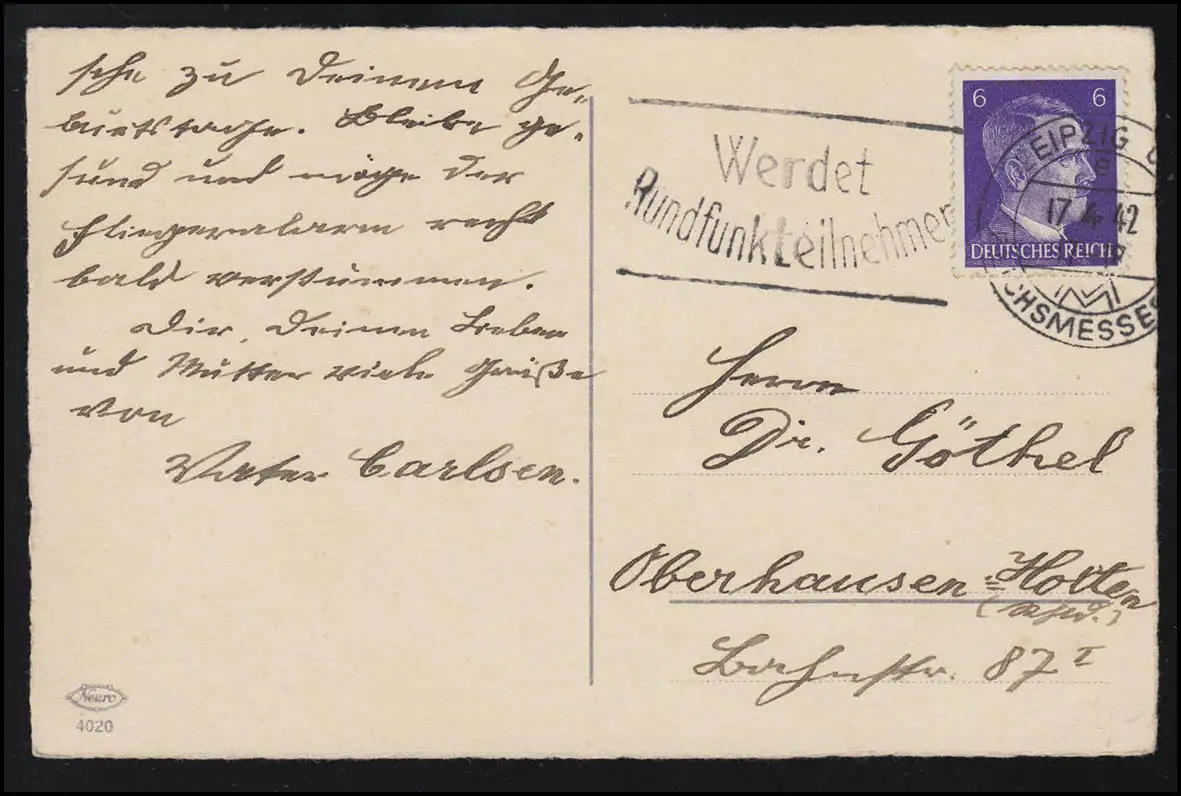 sche zu Deinem Ge-
burtstage. Bleibe ge-
sund und möge der
Fliegeralarm recht
bald verstummen.
Dir, Deinen Lieben
und Mutter viele Grüße
von
Vater Carlsen.
Werdet
Rundfunkteilnehmer
6 6
DEUTSCHES REICH
LEIPZIG
e
17.4.42
CHSMESSES
Herrn
Dr. Göthel
Oberhausen-Holten
Bahnstr. 87 I
Neuro
4020